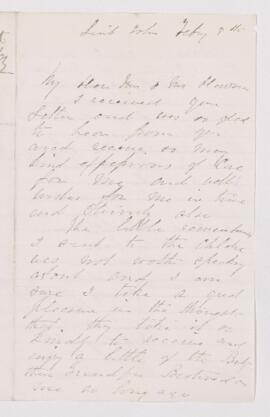 Saint John Feby 8th
My Dear Mr & Mrs
I received your
letter and was so glad
to hear from you
and receive so many
kind expressions of love
for me and well
wishes for me in time
and Eternity also
the little remembrance
I sent to the children
was not worth speaking
about and I am
sure I take a great
pleasure in the thought
that they like it so
kindly to receive and
enjoy a little of the
their Grandpa Bestowed on
me so long ago